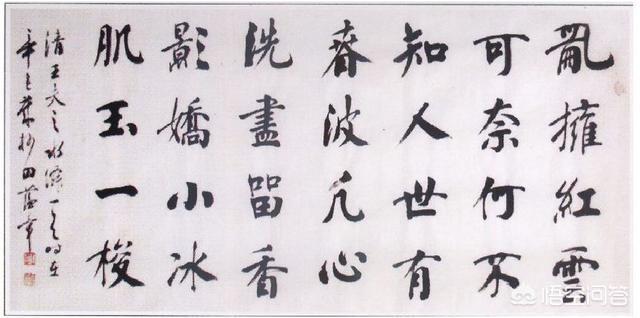 亂擁紅雲
可奈何不
知人世有
春波凡心
洗盡留香
影嬌小冰
肌玉一梭
清王夫之水僊一首時在
辛巳田蘊章
悟空问答